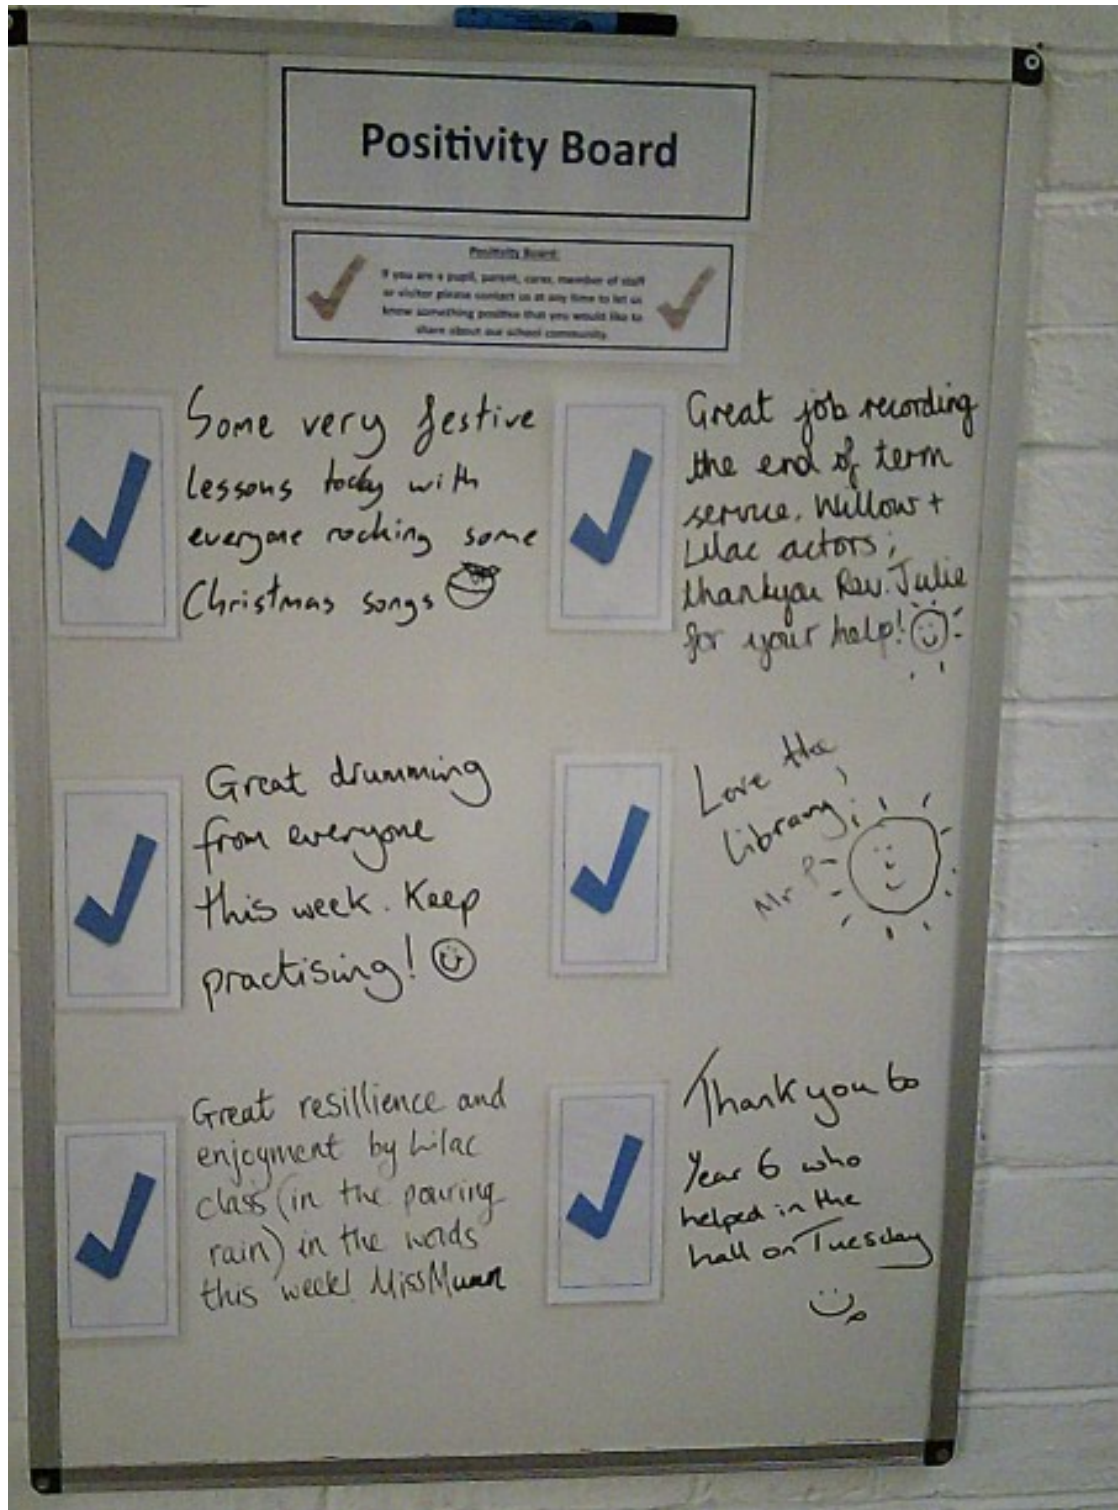 Positivity Board
Positivity Board:
If you are a pupil, parent, carer, member of staff
or visitor please contact us at any time to let us
know something positive that you would like to
share about our school community.
Some very festive
lessons today with
everyone rocking some
Christmas songs
Great job recording
the end of term
service, Willow +
Lilac actors;
thankyou Rev. Julie
for your help!
Great drumming
from everyone
this week. Keep
practising!
Love the
library!
Mr P
Great resillience and
enjoyment by Lilac
class (in the pouring
rain) in the woods
this week! Miss Munn
Thank you to
Year 6 who
helped in the
hall on Tuesday